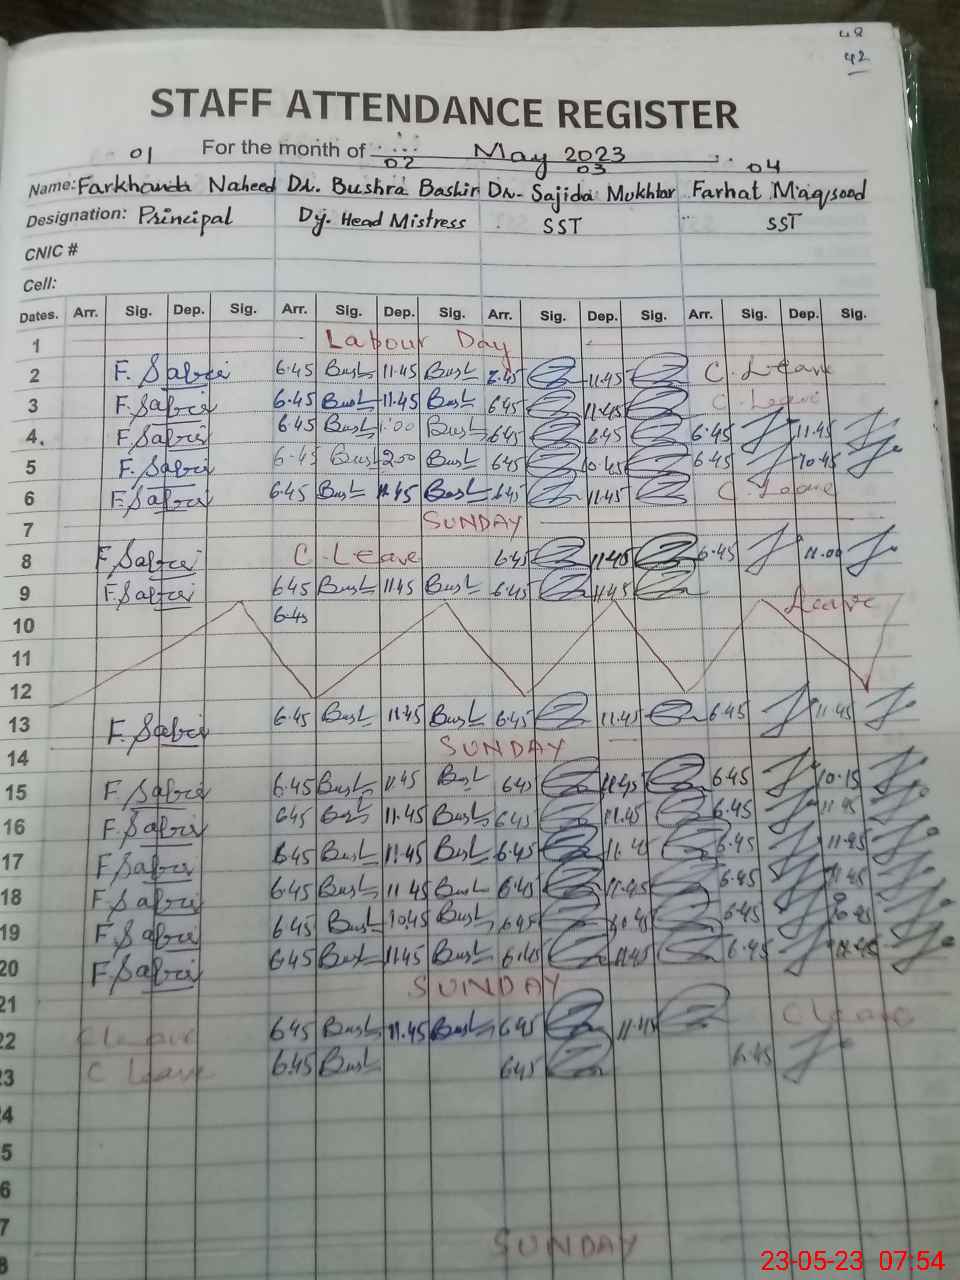 48
42
STAFF ATTENDANCE REGISTER
For the month of May 2023
01 02 03 04
Name: Farkhanda Naheed Dr. Bushra Bashir Dr. Sajida Mukhtar Farhat Maqsood
Designation: Principal Dy. Head Mistress SST SST
CNIC #
Cell:
Dates. Arr. Sig. Dep. Sig. Arr. Sig. Dep. Sig. Arr. Sig. Dep. Sig. Arr. Sig. Dep. Sig.
1 Labour Day
2 F. Sabri 6.45 Bush 11.45 Bush 6.45 11.45 C. Leave
3 F. Sabri 6.45 Bush 11.45 Bush 6.45 11.45 C. Leave
4. F. Sabri 6.45 Bush 1:00 Bush 6.45 6.45 6.45 11.45
5 F. Sabri 6.45 Bush 2.00 Bush 6.45 10.45 6.45 10.45
6 F. Sabri 6.45 Bush 11.45 Bush 6.45 11.45 C. Leave
7 SUNDAY
8 F. Sabri C. Leave 6.45 11.45 6.45 11.00
9 F. Sabri 6.45 Bush 11.45 Bush 6.45 11.45 Leave
10 6.45
11
12
13 F. Sabri 6.45 Bush 11.45 Bush 6.45 11.45 6.45 11.45
14 SUNDAY
15 F. Sabri 6.45 Bush 11.45 Bush 6.45 11.45 6.45 10.15
16 F. Sabri 6.45 Bush 11.45 Bush 6.45 11.45 6.45 11.45
17 F. Sabri 6.45 Bush 11.45 Bush 6.45 11.45 6.45 11.45
18 F. Sabri 6.45 Bush 11.45 Bush 6.45 11.45 6.45 11.45
19 F. Sabri 6.45 Bush 10.45 Bush 6.45 10.45 6.45
20 F. Sabri 6.45 Bush 11.45 Bush 6.45 11.45 6.45 11.45
21 SUNDAY
22 C leave 6.45 Bush 11.45 Bush 6.45 11.45 C leave
23 C leave 6.45 Bush 6.45 6.45
24
5
6
7
8 SUNDAY
23-05-23 07:54